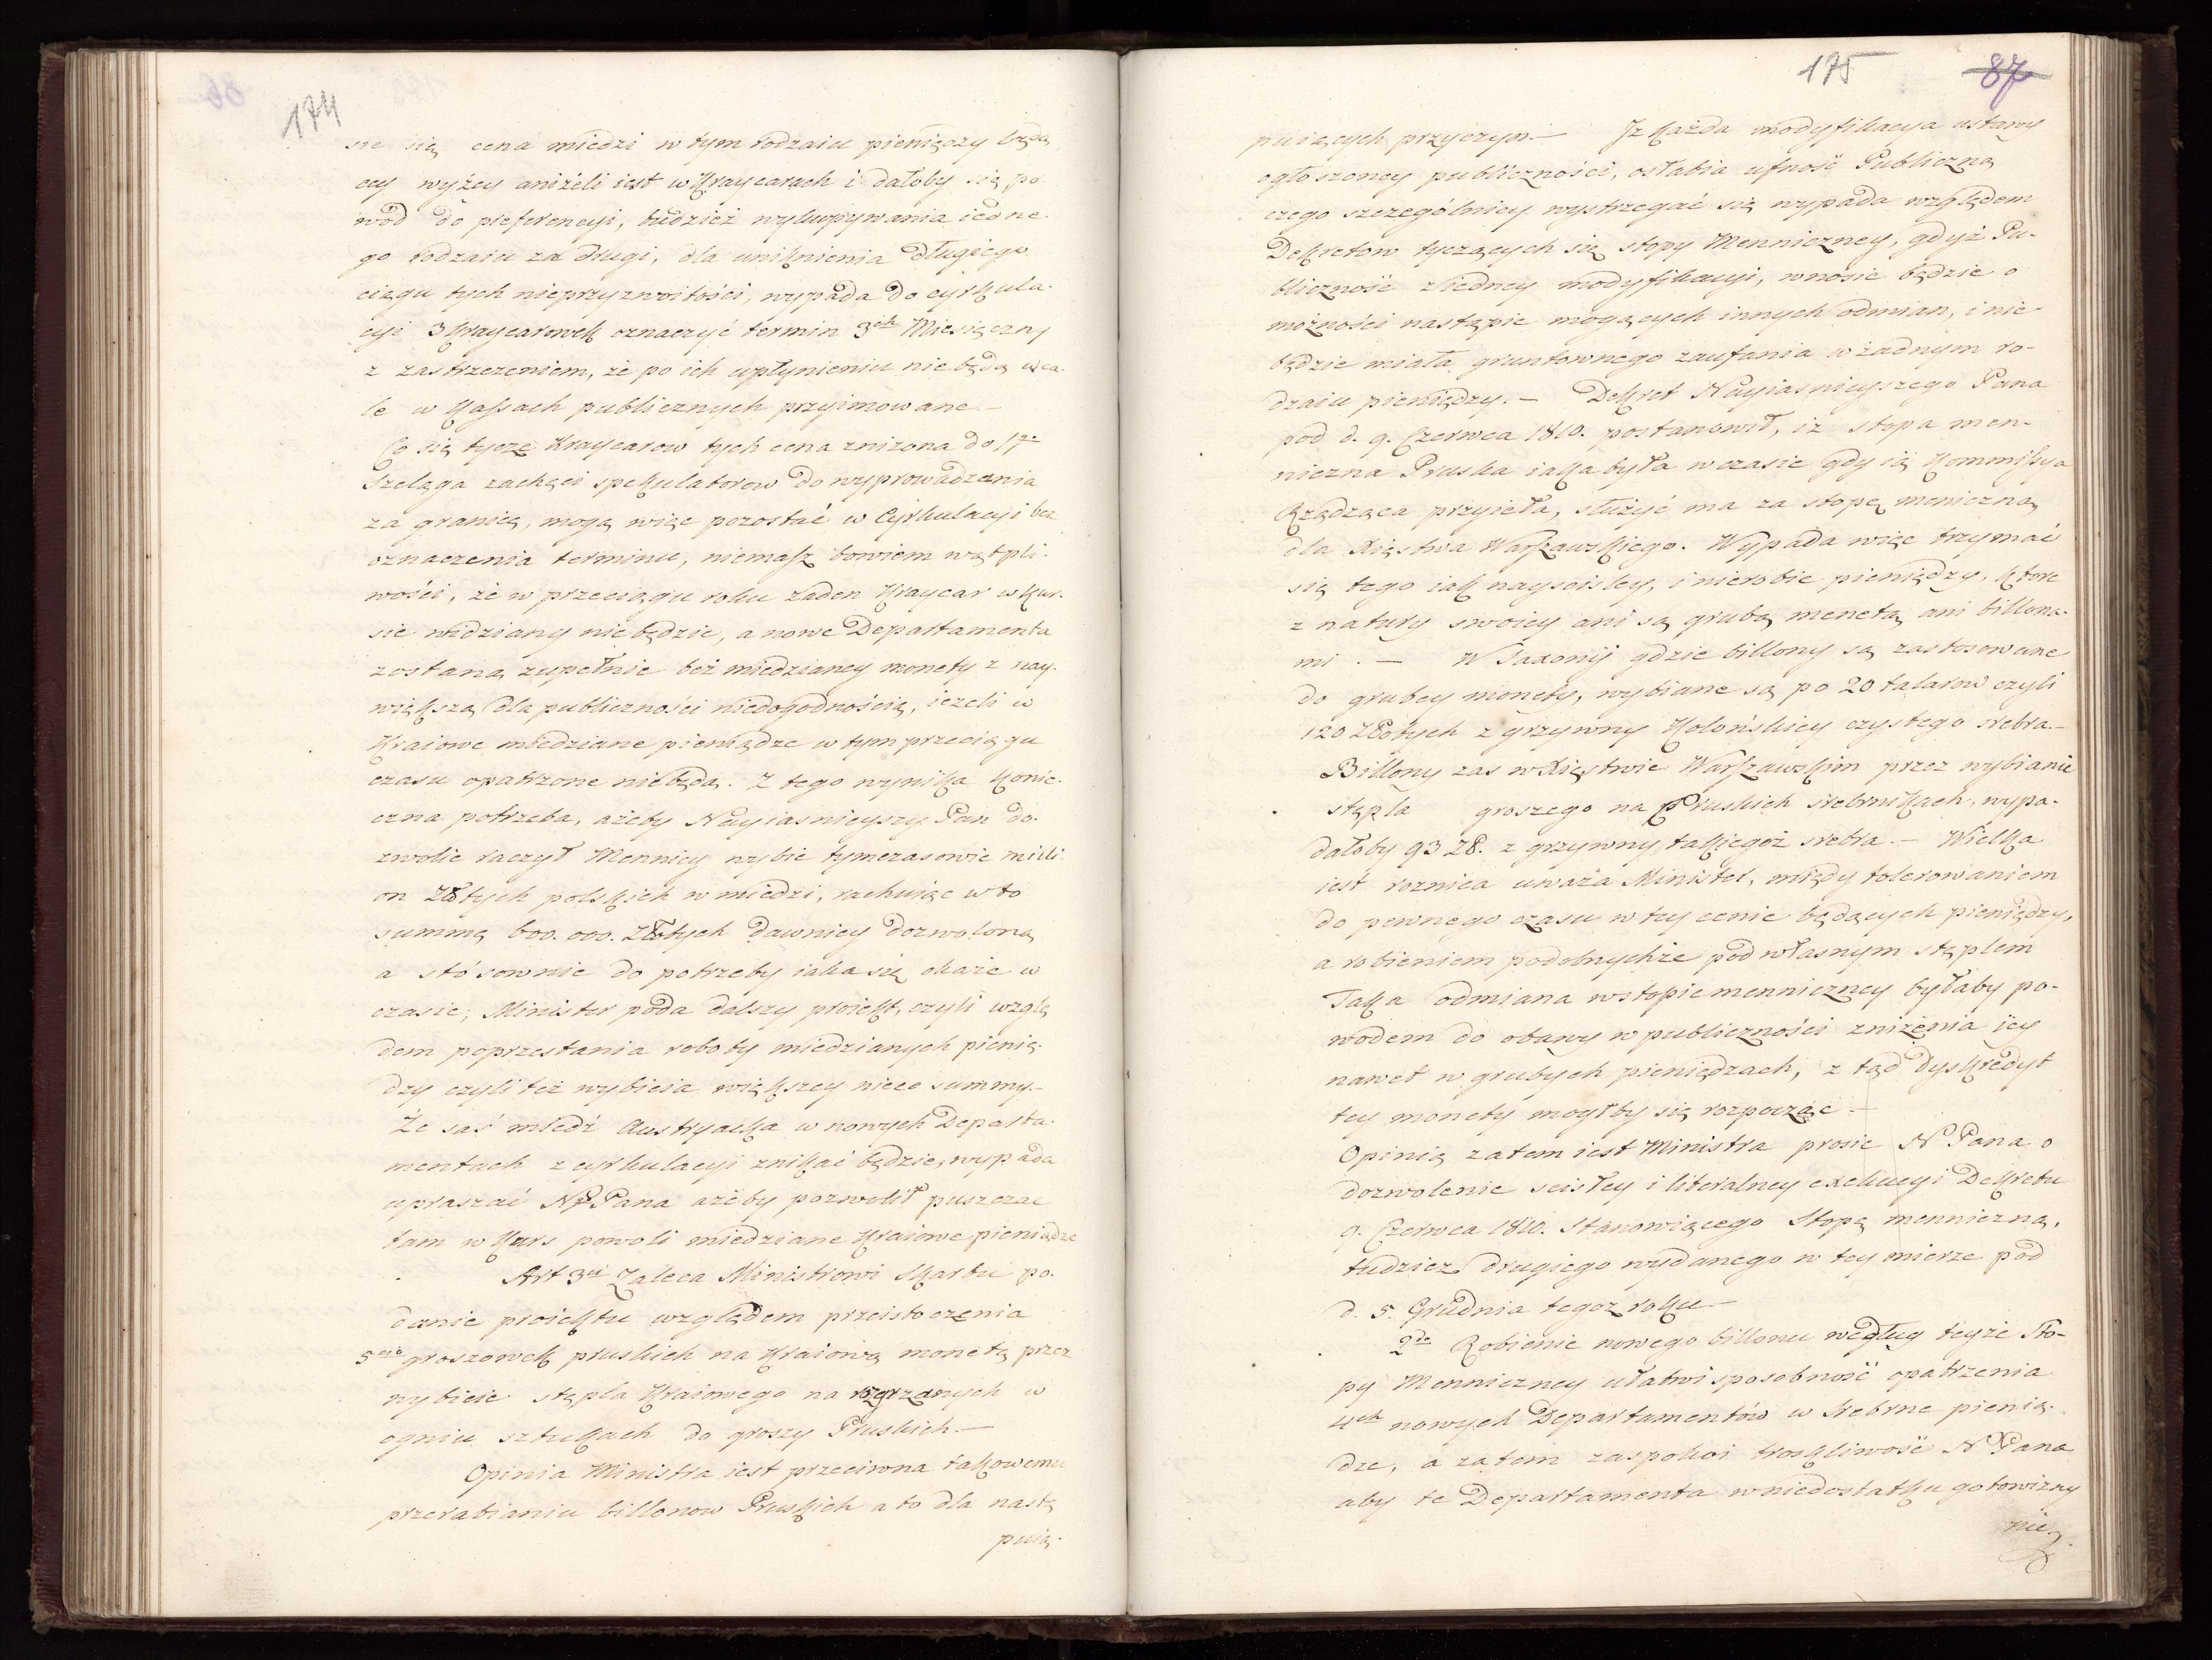 174
sie się cena miedzi w tym rodzaiu pieniędzy będą
cey wyżey aniżeli iest w Kraycarach i dałoby się po
wód do preferencyi, tudzież wykupywania iedne-
go rodzaiu za drugi, dla uniknienia długiego
ciągu tych nieprzyzwoitości, wypada do cyrkula-
cyi 3 Kraycarowek oznaczyć termin 3ch Miesięczny
z zastrzeżeniem, że po ich upłynieniu nie będą wca-
le w Kassach publicznych przyimowane.—
Co się tycze Kraycarow tych cena zniżona do 1go
Szeląga zachęci spekulatorow do wyprowadzania
za granicę, mogą więc pozostać w Cyrkulacyi bez
oznaczenia terminu, niemasz bowiem wątpli-
wości, że w przeciągu roku żaden Kraycar w kur-
sie widziany nie będzie, a nowe Departamenta
zostaną zupełnie bez miedzianey monety z nay-
większą dla publiczności niedogodnością, ieżeli w
Kraiowe miedziane pieniądze w tym przeciągu
czasu opatrzone nie będą. Z tego wynika konie-
czna potrzeba, ażeby Nayiasnieyszy Pan do-
zwolic raczył Mennicy wybic tymczasowie milli-
on Złłtych polskich w miedzi, rachuiąc w to
summę 600.000. Złotych dawniey dozwoloną
a stósownie do potrzeby iaka się okaże w
czasie, Minister poda dalszy proiekt, czyli wzglę
dem poprzestania roboty miedzianych pienię-
dzy czyli też wybicia większey nieco summy.—
Że zaś miedź Austryacka w nowych Departa-
mentach z cyrkulacyi znikać będzie, wypada
upraszać N Pana ażeby pozwolił puszczac
tam w kurs powoli miedziane Kraiowe pieniądze
Art 3ci Zaleca Ministrowi Skarbu po-
danie proiektu względem przeistoczenia
5cio groszowek pruskich na Kraiową monetę przez
wybicie stępla Kraiowego na rozgrzanych w
ogniu sztukach do groszy Pruskich.—
Opinia Ministra iest przeciwna takowemu
przerabianiu billonow Pruskich a to dla nastę
puią-
175 87
puiących przyczyn.— Iż każda modyfikacya ustawy
ogłoszoney publiczności, osłabia ufność Publiczną
czego szczególniey wystrzegać się wypada względem
Dekretow tyczących się stopy Menniczney, gdyż Pu-
bliczność z iedney modyfikacyi, wnosic będzie o
możności nastąpic mogących innych odmian, i nie-
będzie miała gruntownego zaufania w żadnym ro-
dzaiu pieniędzy.— Dekret Nayiasnieyszego Pana
pod d. 9. Czerwca 1810. postanowił, iż stopa men-
niczna Pruska iaka była w czasie gdy ią Kommissya
Rządząca przyieła, służyć ma za stopę meniczną
dla Xięstwa Warszawskiego. Wypada więc trzymać
się tego iak nayscisley, i nierobic pieniędzy, ktore
z natury swoiey ani są grubą monetą ani billona-
mi.— W Saxonij gdzie billony są zastosowane
do grubey monety, wybiane są po 20 talarow czyli
120 Złotych z grzywny Kolońskiey czystego srebra.—
Billony zas w Xięstwie Warszawskim przez wybianie
stępla groszego na Pruskich srebrnikach, wypa-
dałoby 93 Zł. z grzywny takiegoż srebra.— Wielka
iest roznica uważa Minister, między tolerowaniem
do pewnego czasu w tey cenie będących pieniędzy,
a robieniem podobnychże pod własnym stęplem
Taka odmiana w stopie menniczney byłaby po-
wodem do obawy w publiczności zniżenia iey
nawet w grubych pieniędzach, z tąd dyskredyt
tey monety mogłby się rozpocząc.—
Opinią zatem iest Ministra prosic N Pana o
dozwolenie scisłey i literalney exekucyi Dekretu
9. Czerwca 1810. Stanowiącego Stopę menniczną,
tudzież drugiego wydanego w tey mierze pod
d. 5. Grudnia tegoż roku.—
2do Robienie nowego billonu według teyże Sto-
py Menniczney ułatwi sposobność opatrzenia
4ch nowych Departamentów w srebrne pienią-
dze, a zatem zaspokoi troskliwość N Pana
aby te Departamenta w niedostatku gotowizny
nie